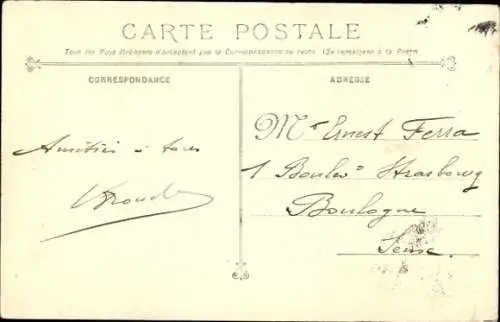 CARTE POSTALE
Tous les Pays étrangers n'acceptent pas la Correspondance au recto. (Se renseigner à la Poste)
CORRESPONDANCE
ADRESSE
Amitiés à tous
Mr Ernest Ferra
1 Boulevd Strasbourg
Boulogne
Seine